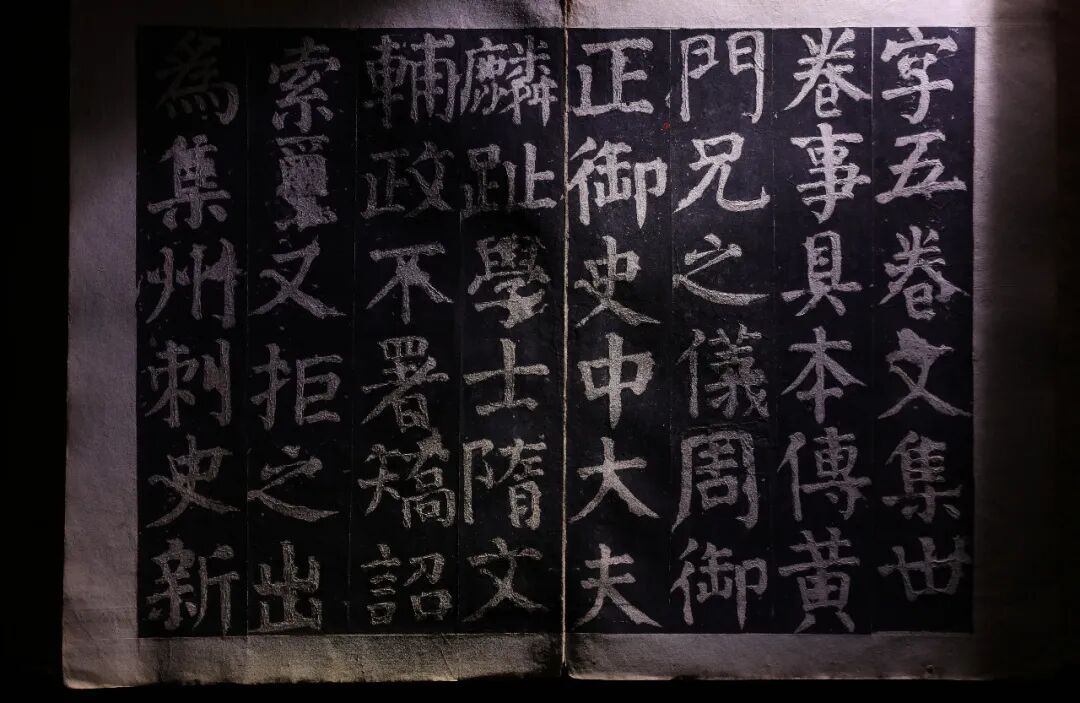 字五卷文集卅
卷事具本傳黃
門兄之儀周御
正御史中大夫
麟趾學士隋文
輔政不署矯詔
索璽文拒之出
為集州刺史新